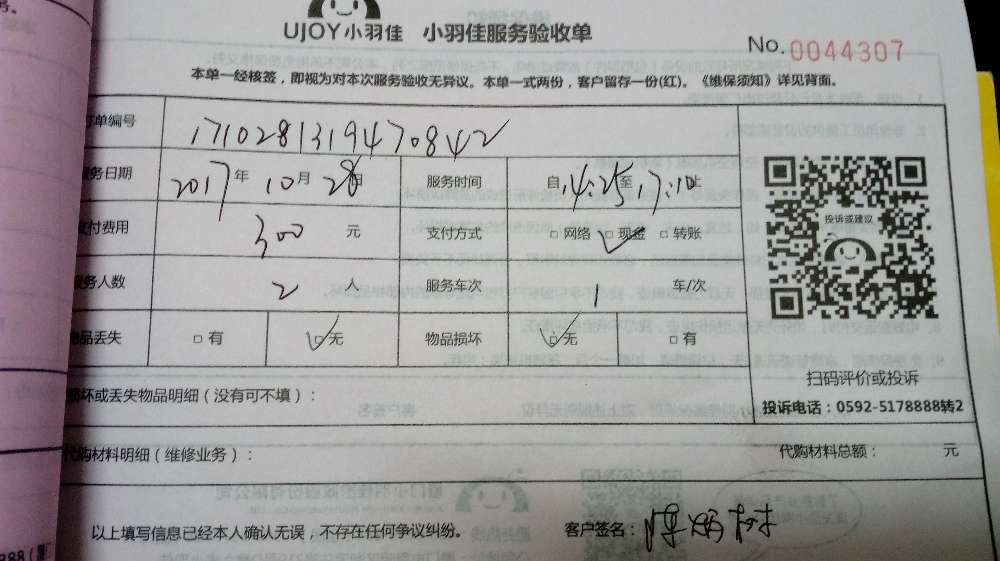 UJOY小羽佳 小羽佳服务验收单
No. 0044307
本单一经核签，即视为对本次服务验收无异议。本单一式两份，客户留存一份(红)。《维保须知》详见背面。
单编号 1710281319470842
服务日期 2017年 10月 28日 服务时间 自14:25至17:10止
支付费用 300 元 支付方式 □网络 □现金 □转账
服务人数 2 人 服务车次 1 车/次
物品丢失 □有 □无 物品损坏 □无 □有
投诉或建议
扫码评价或投诉
投诉电话：0592-5178888转2
损坏或丢失物品明细（没有可不填）：
代购材料明细（维修业务）： 代购材料总额： 元
以上填写信息已经本人确认无误，不存在任何争议纠纷。 客户签名：